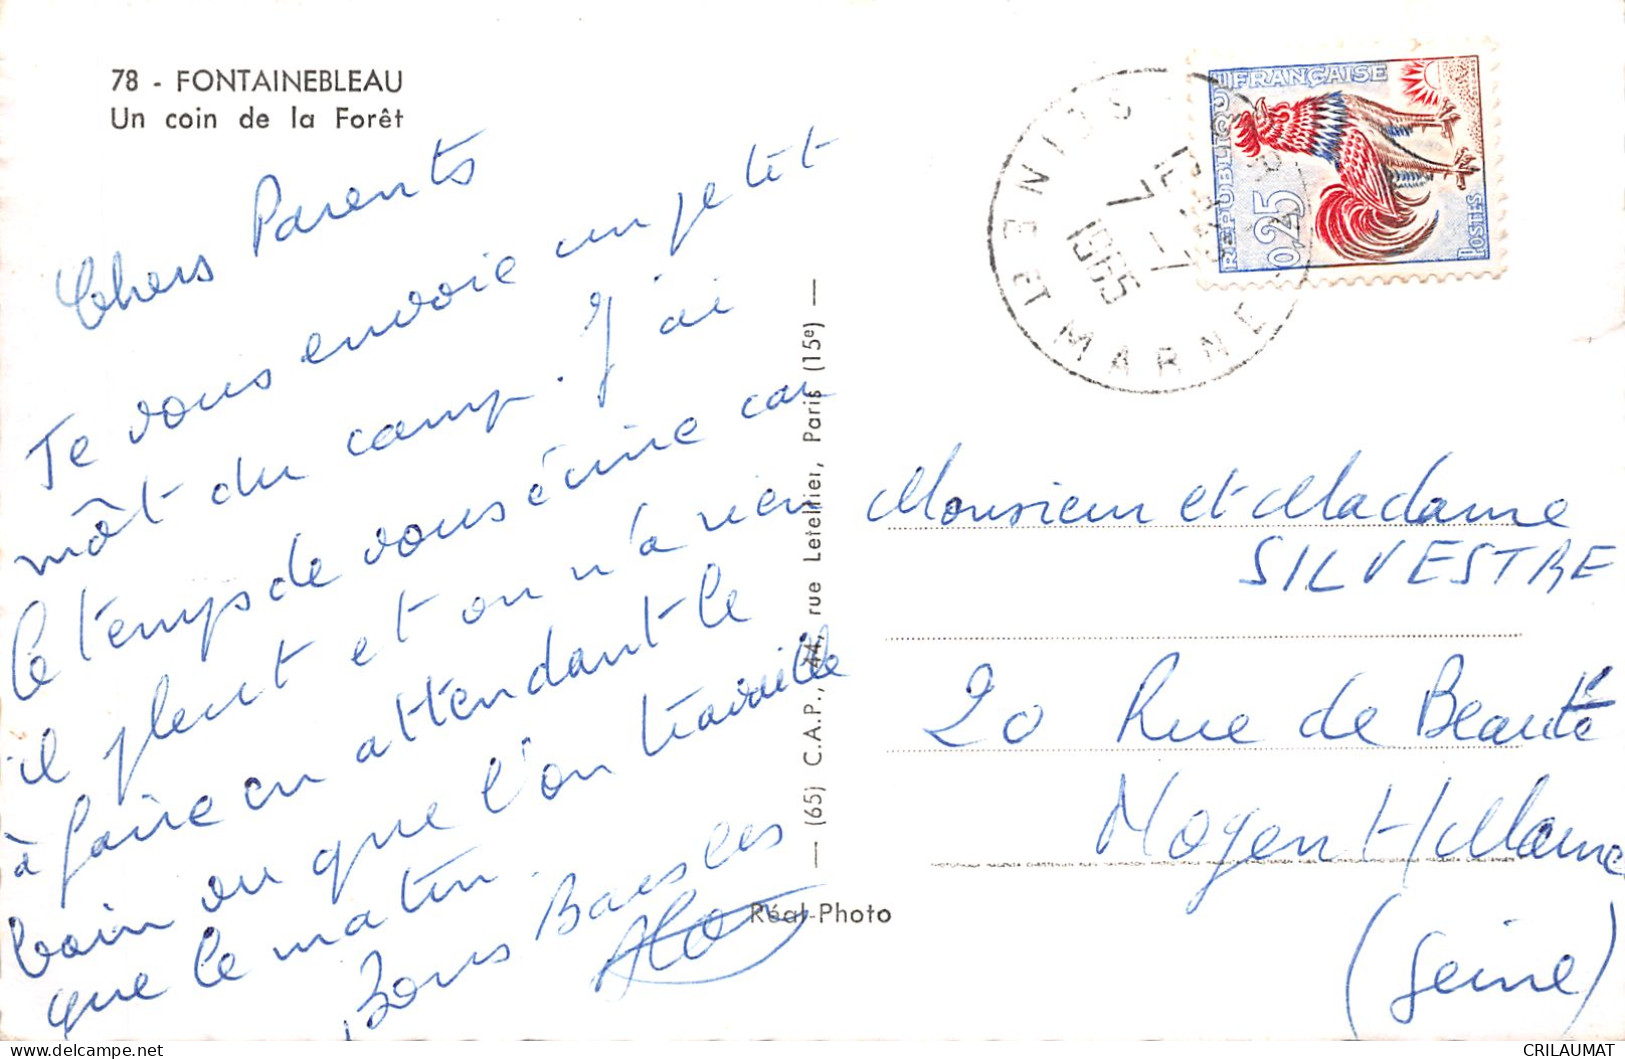 78 - FONTAINEBLEAU
Un coin de la Forêt
Chers Parents
Je vous envoie un petit
môt du camp. J'ai
le temps de vous écrire car
il pleut et on n'a rien
à faire en attendant le
bain ou que l'on travaille
que le matin.
Bons Baisers les
(65) C.A.P., 44, rue Letellier, Paris (15e)
Réal-Photo
RÉPUBLIQUE FRANÇAISE
0,25
POSTES
SEINE ET MARNE
7 - 7
1965
Monsieur et Madame
SILVESTRE
20 Rue de Beauté
Nogent s/ Marne
(Seine)
CRILAUMAT